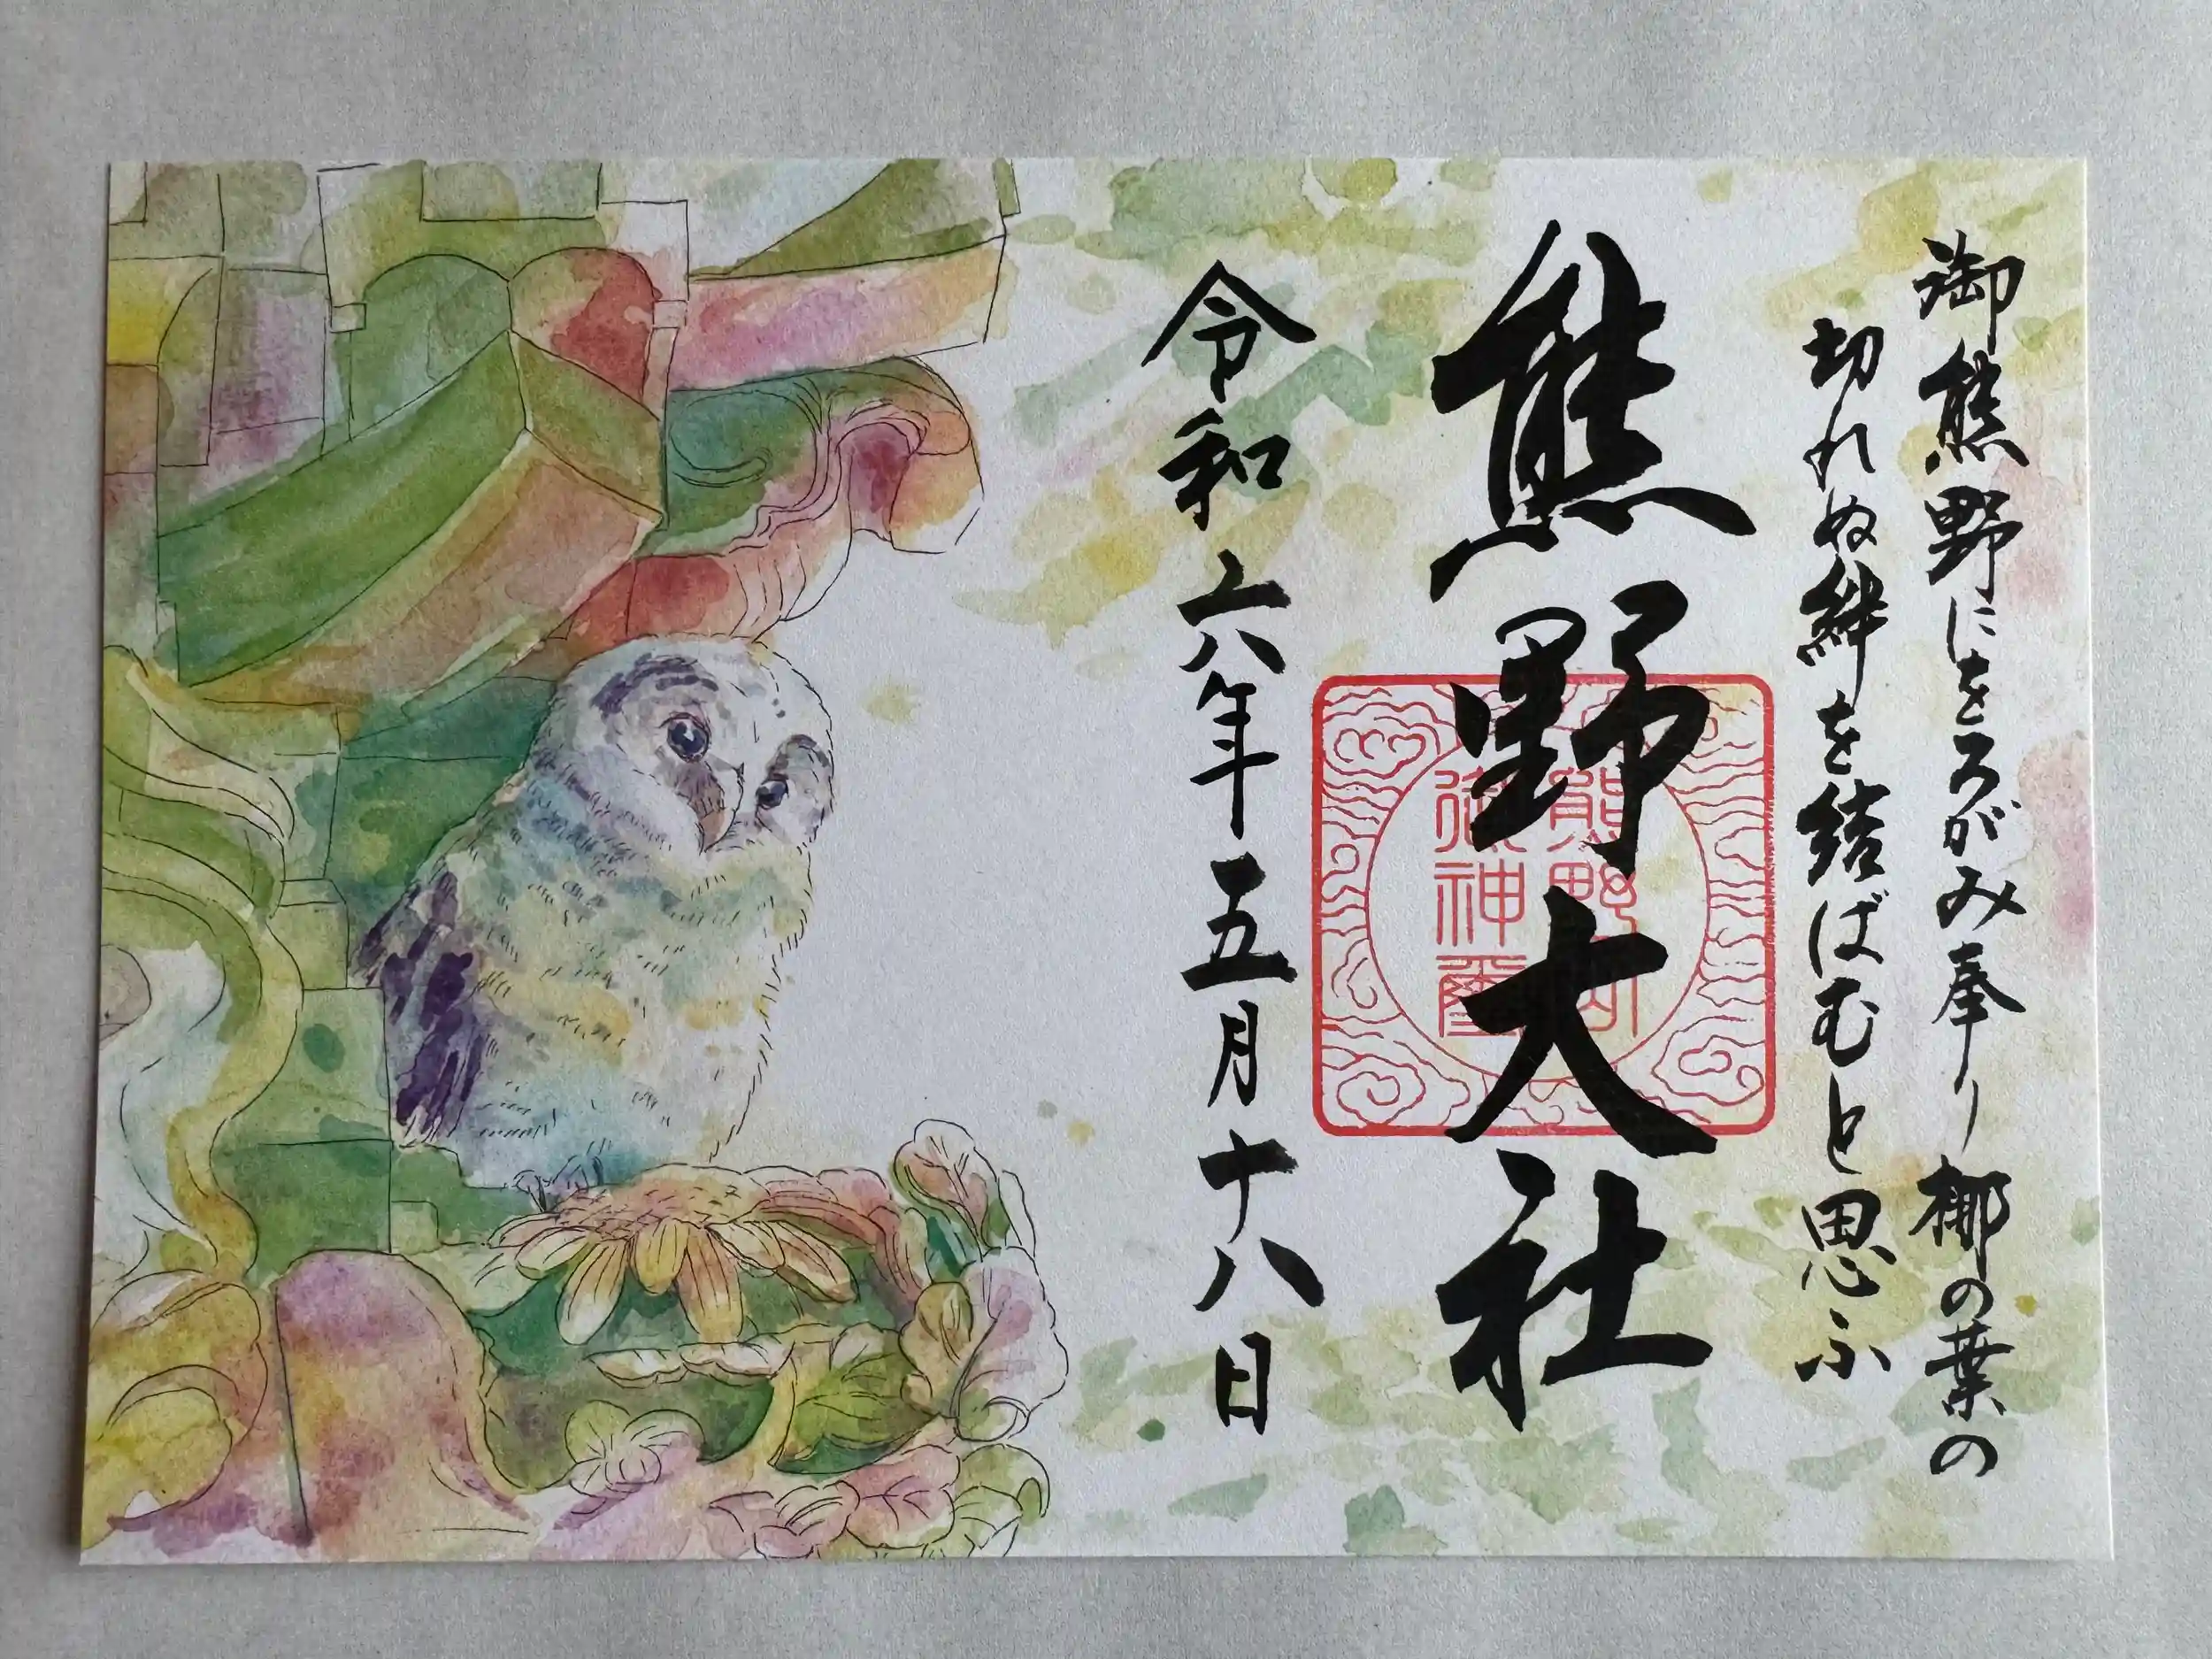 御熊野にをろがみ奉り梛の葉の
切れぬ絆を結ばむと思ふ
熊野大社
令和六年五月十八日